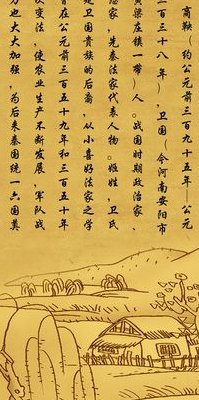 商鞅（约公元前三百九十五年—公元
三百三十八年），卫国（今河南安阳市
黄梁庄镇一带）人。战国时期政治家、
法家，先秦法家代表人物。姬姓，卫氏
是卫国贵族的后裔，从小喜好法家之学
曾在公元前三百五十九年和三百五十年
次变法，使农业生产不断发展，军队战
力也大大加强，为后来秦国统一六国奠